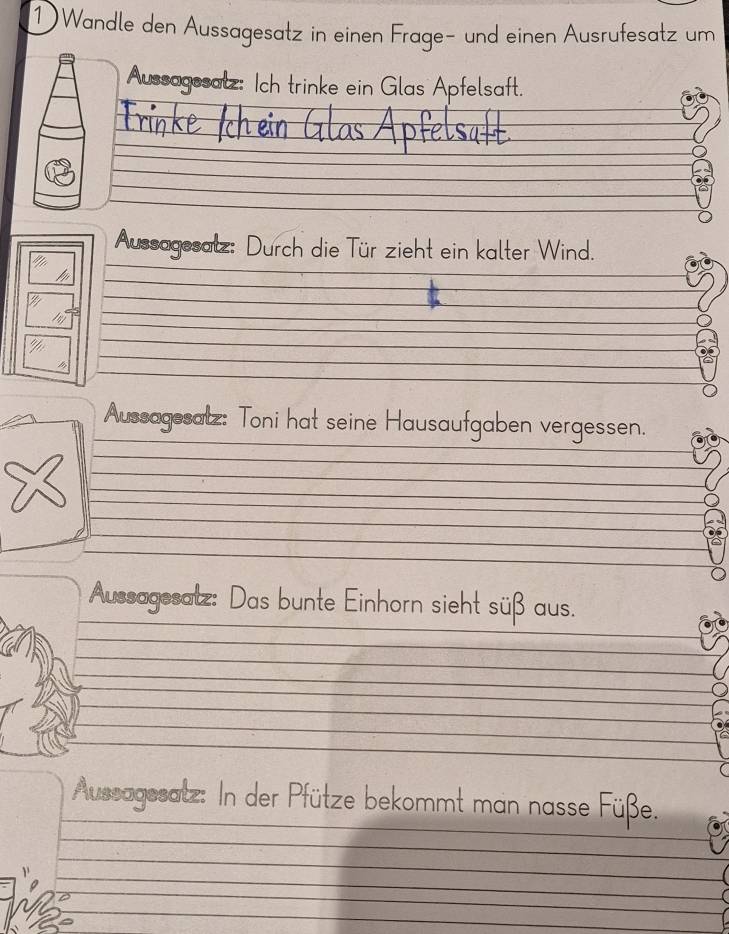 1 Wandle den Aussagesatz in einen Frage- und einen Ausrufesatz um
Aussagesatz: Ich trinke ein Glas Apfelsaft.
Trinke Ich ein Glas Apfelsaft
Aussagesatz: Durch die Tür zieht ein kalter Wind.
Aussagesatz: Toni hat seine Hausaufgaben vergessen.
Aussagesatz: Das bunte Einhorn sieht süß aus.
Aussagesatz: In der Pfütze bekommt man nasse Füße.